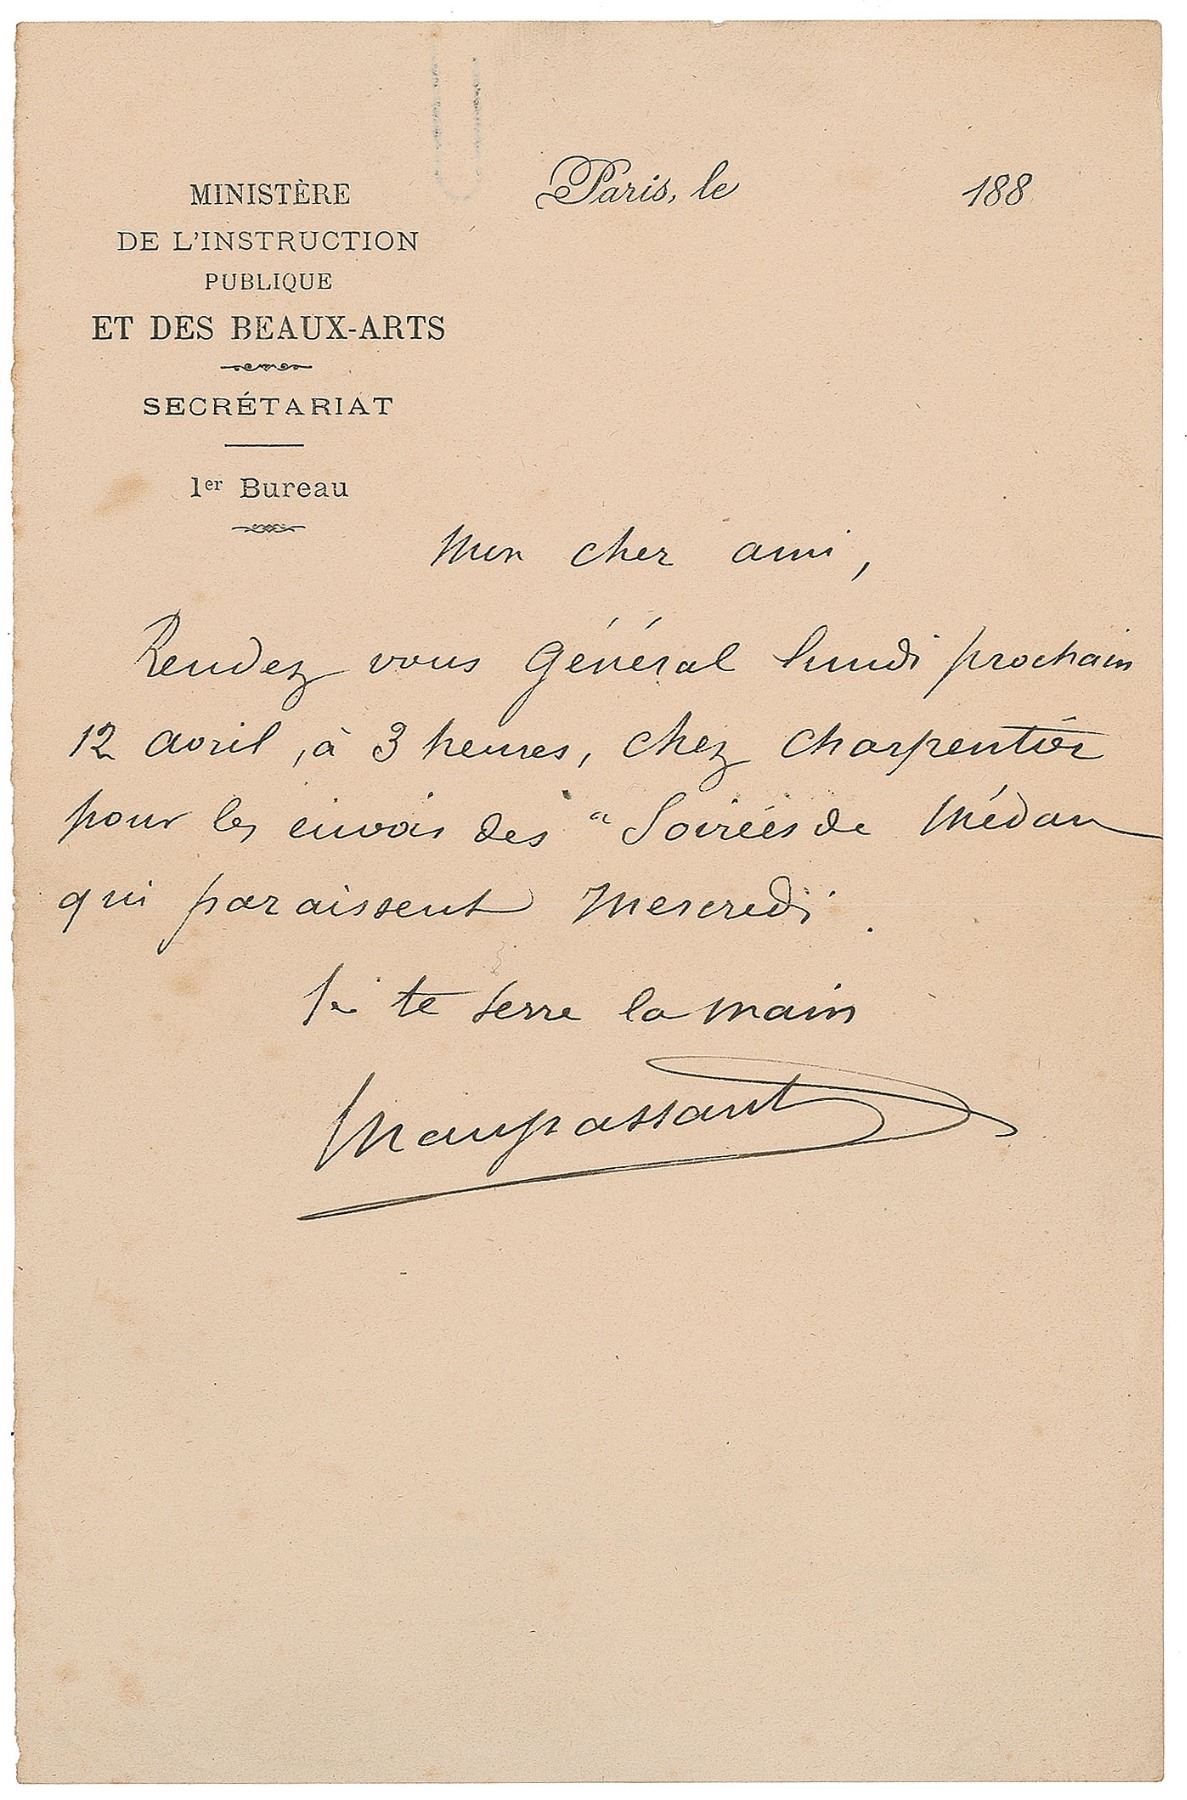 MINISTÈRE
DE L'INSTRUCTION
PUBLIQUE
ET DES BEAUX-ARTS
SECRÉTARIAT
1er Bureau
Paris, le 188
Mon cher ami,
Rendez vous Général lundi prochain
12 avril, à 3 heures, chez Charpentier
pour les envois des "Soirées de Médan
qui paraissent Mercredi.
Je te serre la main
Maupassant